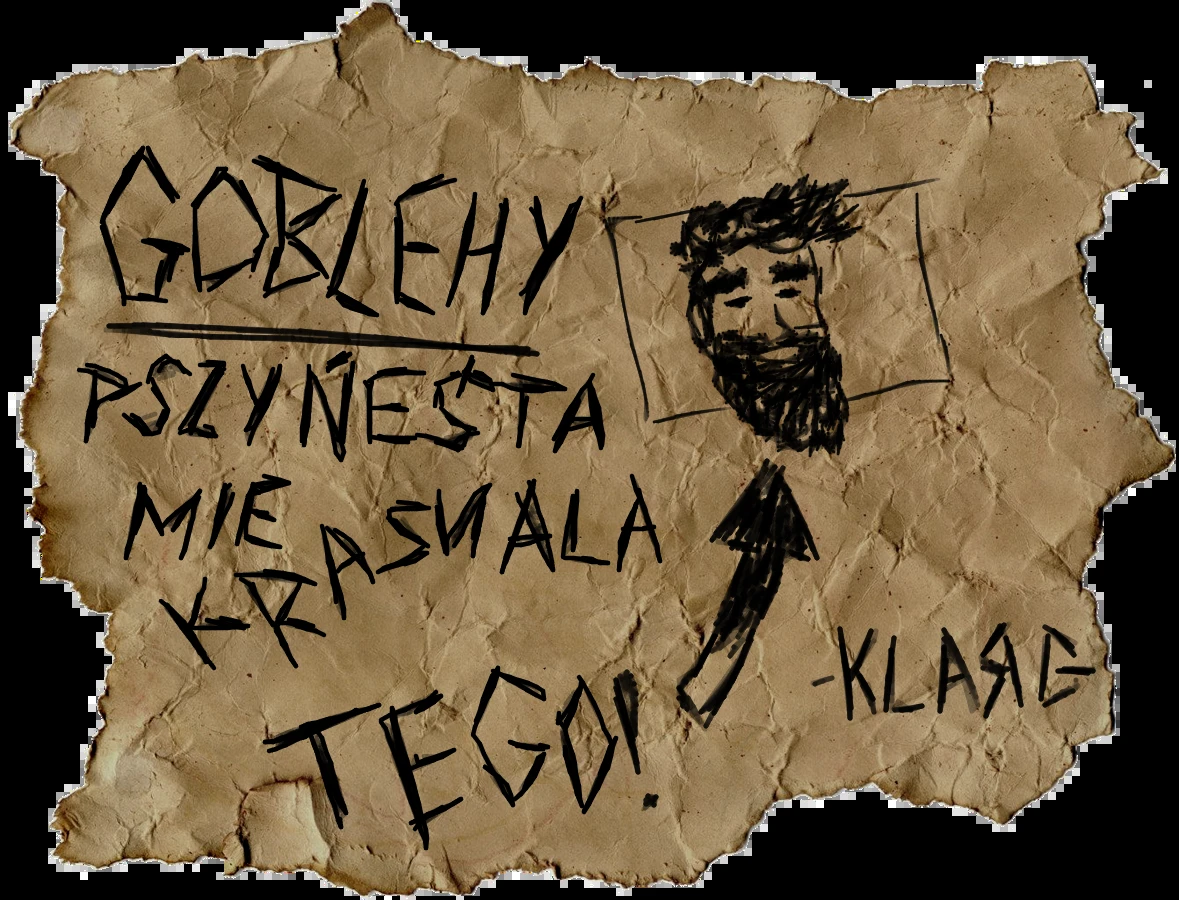 GOBLEHY
PSZYŃEŚTA
MIE
KRASNALA
TEGO!
-KLARG